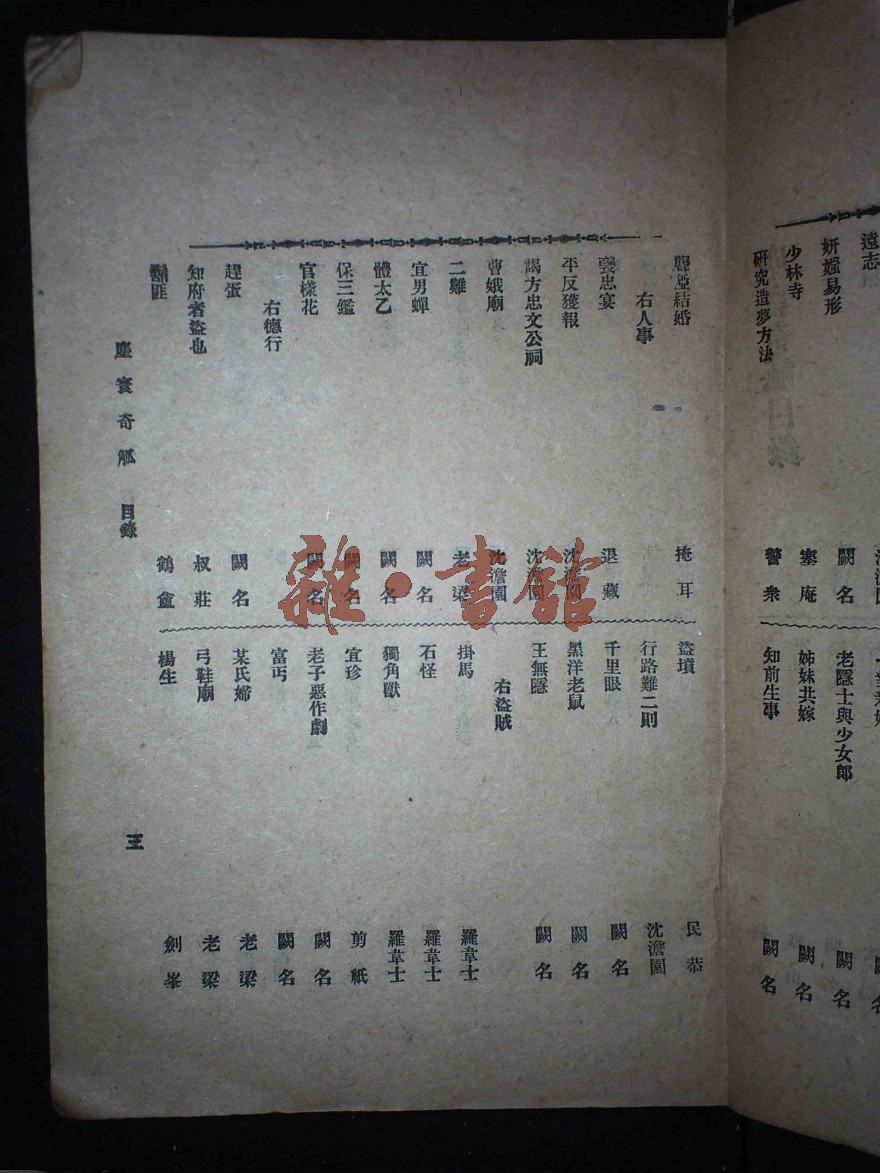 遠志
妍媸易形 闕名
少林寺 塞庵
研究造夢方法 警衆
老隱士與少女郎 闕名
姊妹共嫁 闕名
知前生事 闕名
聾啞結婚 掩耳
右人事
褻忠宴 退藏
平反獲報 沈澹園
謁方忠文公祠 沈澹園
曹娥廟 沈澹園
二難 老梁
宜男蟬 闕名
體太乙 闕名
保三鑑 闕名
官樣花 闕名
右德行
趕蛋 闕名
知府者盜也 叔莊
鬍匪 鶴盦
盜墳 民恭
行路難二則 沈澹園
千里眼 闕名
黑洋老鼠 闕名
王無隱 闕名
右盜賊
掛馬 羅韋士
石怪 羅韋士
獨角獸 羅韋士
宜珍 剪紙
老子惡作劇 闕名
富丐 闕名
某氏婦 老梁
弓鞋廟 老梁
楊生 劍峯
塵寰奇觚 目錄
三
雜·書館